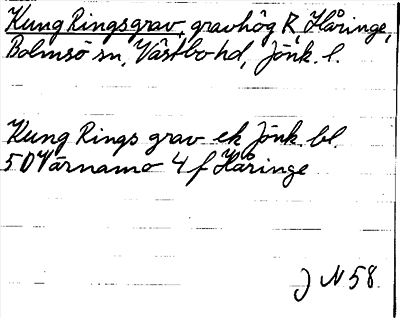 Kung Ringsgrav, gravhög R, Håringe,
Bolmsö sn, Västbo hd, Jönk. l.
Kung Rings grav ek Jönk. bl.
5D Värnamo 4f Håringe
J N 58